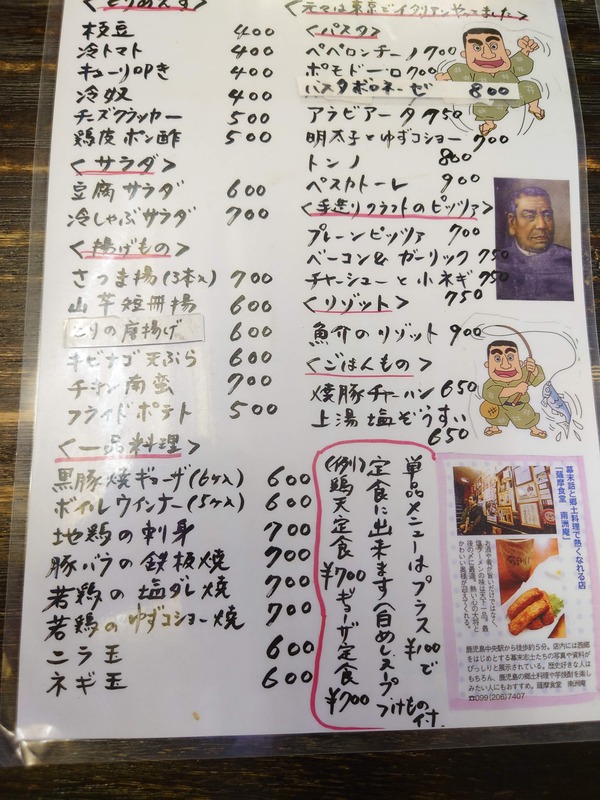 <とりあえず>
枝豆 400
冷トマト 400
キューリ叩き 400
冷奴 400
チーズクラッカー 500
鶏皮ポン酢 500
<サラダ>
豆腐サラダ 600
冷しゃぶサラダ 700
<揚げもの>
さつま揚(3本入) 700
山芋短冊揚 600
とりの唐揚げ 600
キビナゴ天ぷら 600
チキン南蛮 700
フライドポテト 500
<一品料理>
黒豚焼ギョーザ(6ヶ入) 600
ボイルウインナー(5ヶ入) 600
地鶏の刺身 700
豚バラの鉄板焼 700
若鶏の塩ダレ焼 700
若鶏のゆずコショー焼 700
ニラ玉 600
ネギ玉 600
元々は東京でイタリアンやってました>
<パスタ>
ペペロンチーノ 700
ポモドーロ 700
パスタボロネーゼ 800
アラビアータ 750
明太子とゆずコショー 700
トンノ 800
ペスカトーレ 900
<手造りクラフトのピッツァ>
プレーンピッツァ 700
ベーコン&ガーリック 750
チャーシューと小ネギ 750
750
<リゾット>
魚介のリゾット 900
<ごはんもの>
焼豚チャーハン 650
上湯塩ぞうすい
650
単品メニューはプラス¥100で
定食に出来ます(白めし、スープ
つけもの付.
(例)鶏天定食¥700ギョーザ定食¥700
幕末話と郷土料理で熱くなれる店
「薩摩食堂 南洲庵」
鹿児島中央駅から徒歩約5分。店内には西郷
をはじめとする幕末志士たちの写真や資料が
びっしりと展示されている。歴史好きな人は
もちろん、鹿児島の郷土料理や芋焼酎を楽し
みたい人にもおすすめ。薩摩食堂 南洲庵
☎099(206)7407